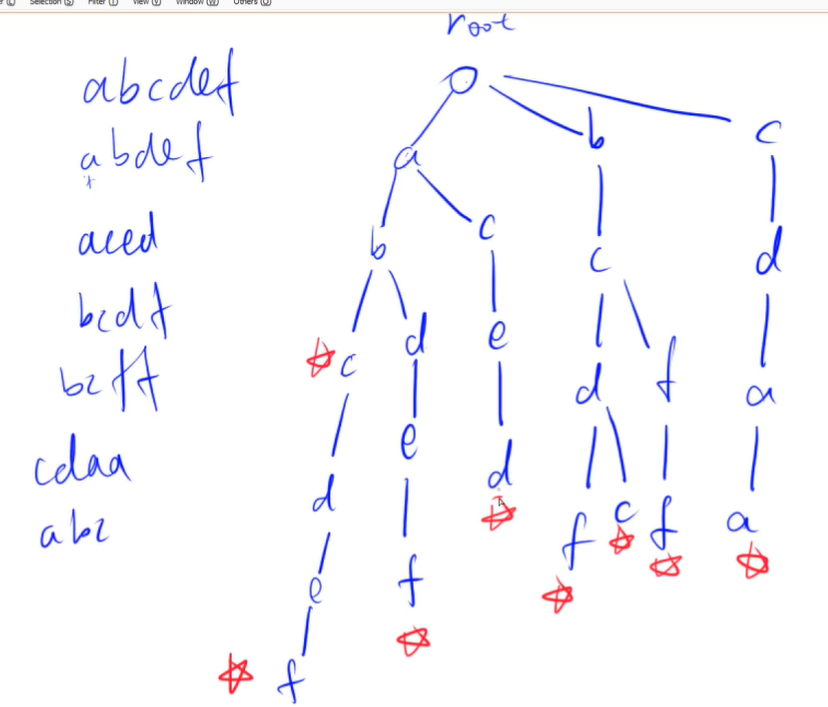 Selection (S) Filter (T) View (V) Window (W) Others (O)
root
abcdef
abdef
aced
bcdf
bcff
cdaa
abc
a b c
b c c d
c d e d f a
d e d f c f a
e f
f